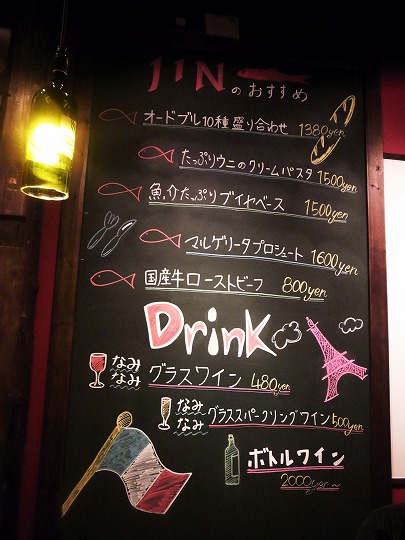 JINのおすすめ
オードブル10種盛り合わせ 1380yen
たっぷりウニのクリームパスタ 1500yen
魚介たっぷりブイヤベース 1500yen
マルゲリータプロシュート 1600yen
国産牛ローストビーフ 800yen
Drink
なみなみ グラスワイン 480yen
なみなみ グラススパークリングワイン 500yen
ボトルワイン
2000yen～